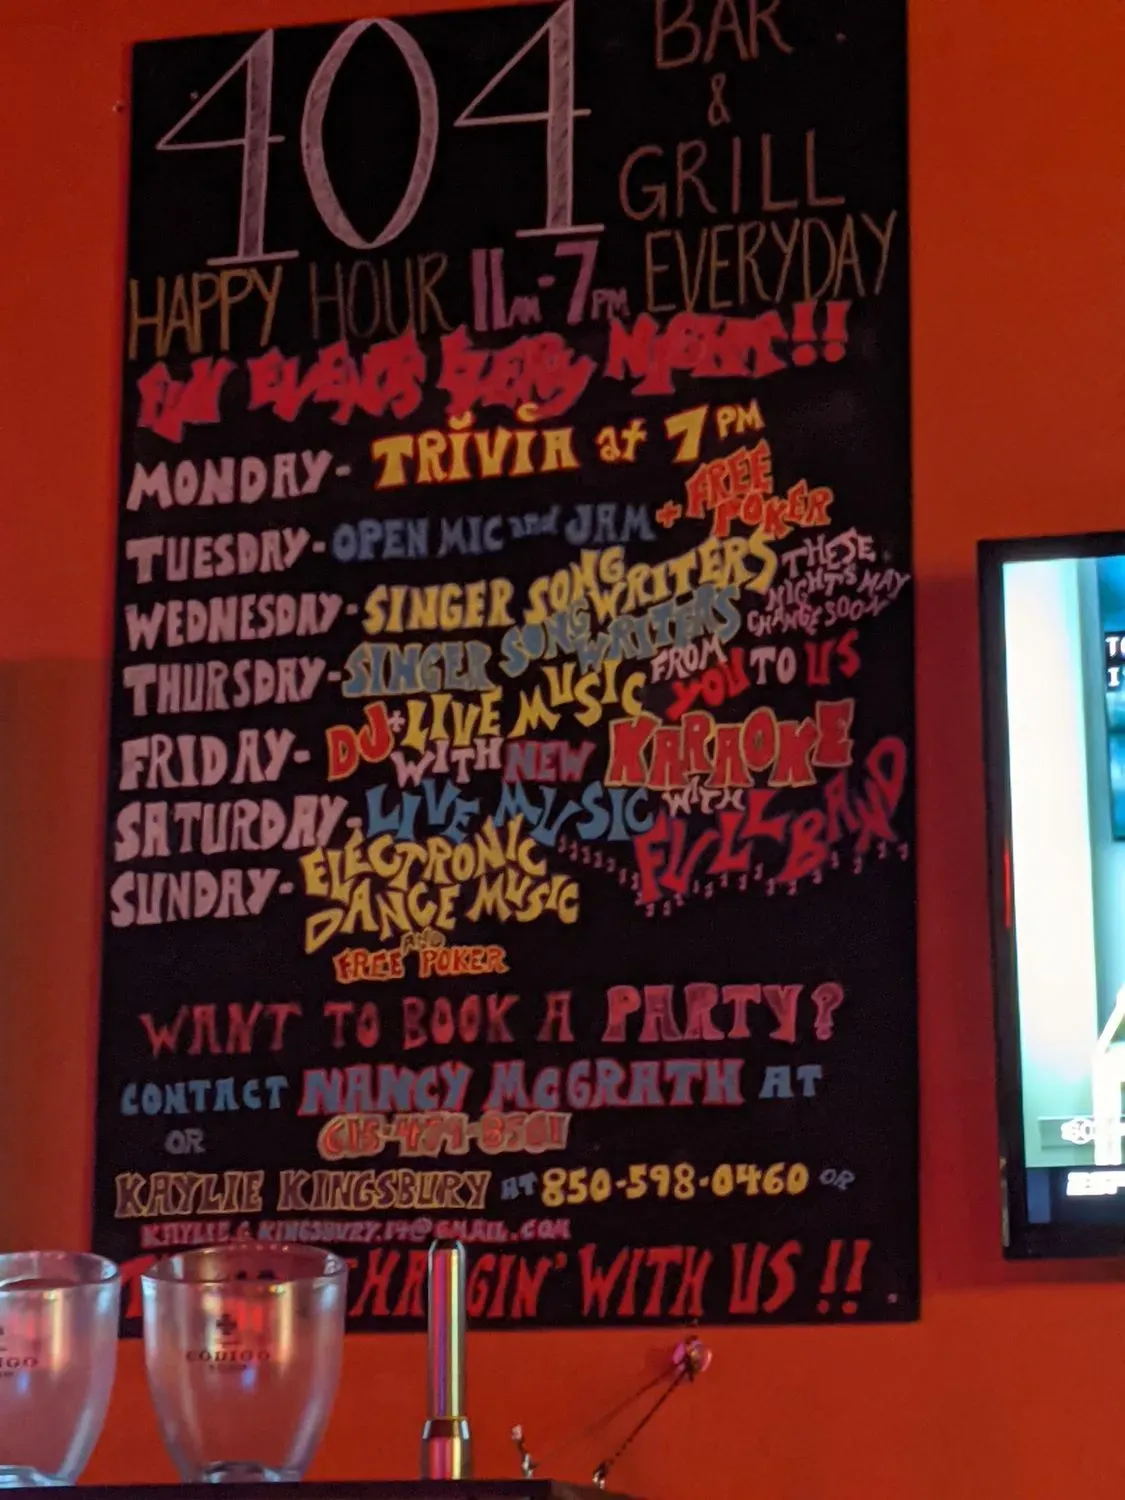 404 BAR
&
GRILL
HAPPY HOUR 11AM-7PM EVERYDAY
FUN EVENTS EVERY NIGHT!!
MONDAY- TRIVIA at 7PM
TUESDAY- OPEN MIC and JAM + FREE POKER
WEDNESDAY- SINGER SONGWRITERS
THURSDAY- SINGER SONGWRITERS
THESE NIGHT'S MAY CHANGE SOON
FROM YOU TO US
FRIDAY- DJ + LIVE MUSIC
WITH NEW KARAOKE
SATURDAY- LIVE MUSIC WITH FULL BAND
SUNDAY- ELECTRONIC
DANCE MUSIC
AND
FREE POKER
WANT TO BOOK A PARTY?
CONTACT NANCY McGRATH AT
OR
KAYLIE KINGSBURY AT 850-598-0460 OR
HANGIN' WITH US !!
CODIGO